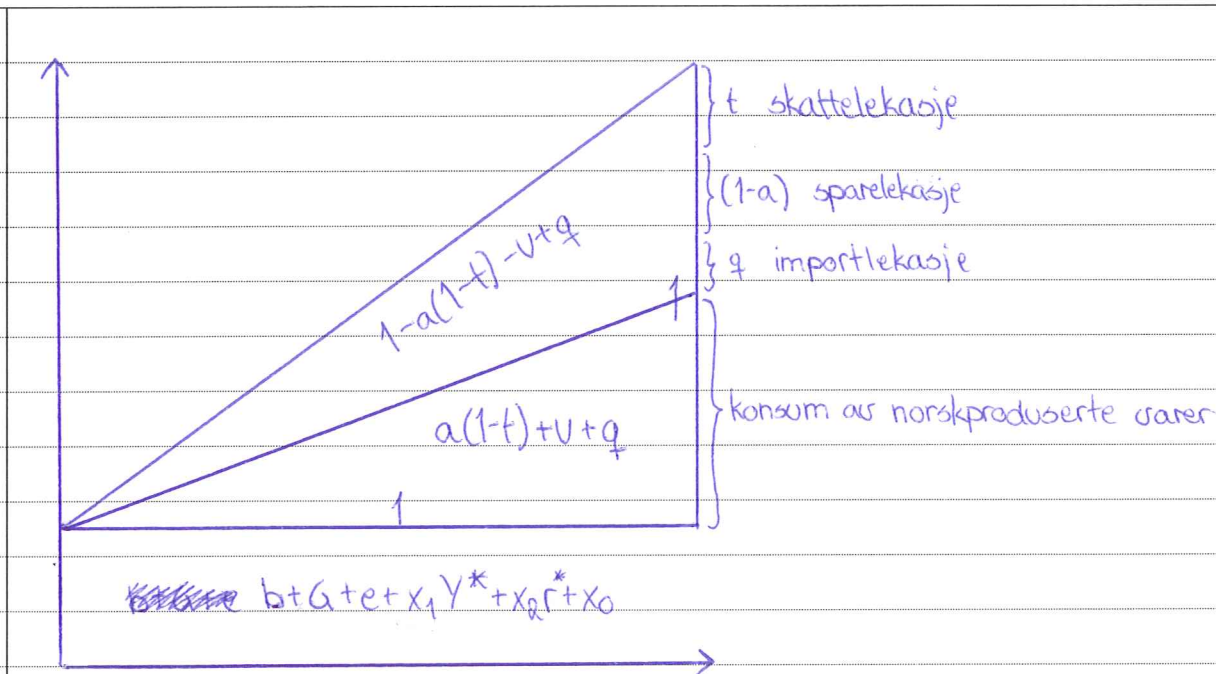 t skattelekasje
(1-a) sparelekasje
q importlekasje
1-a(1-t)-v+q
1
konsum av norskproduserte varer
a(1-t)+v+q
1
b+G+e+x₁Y*+x₂r*+x₀